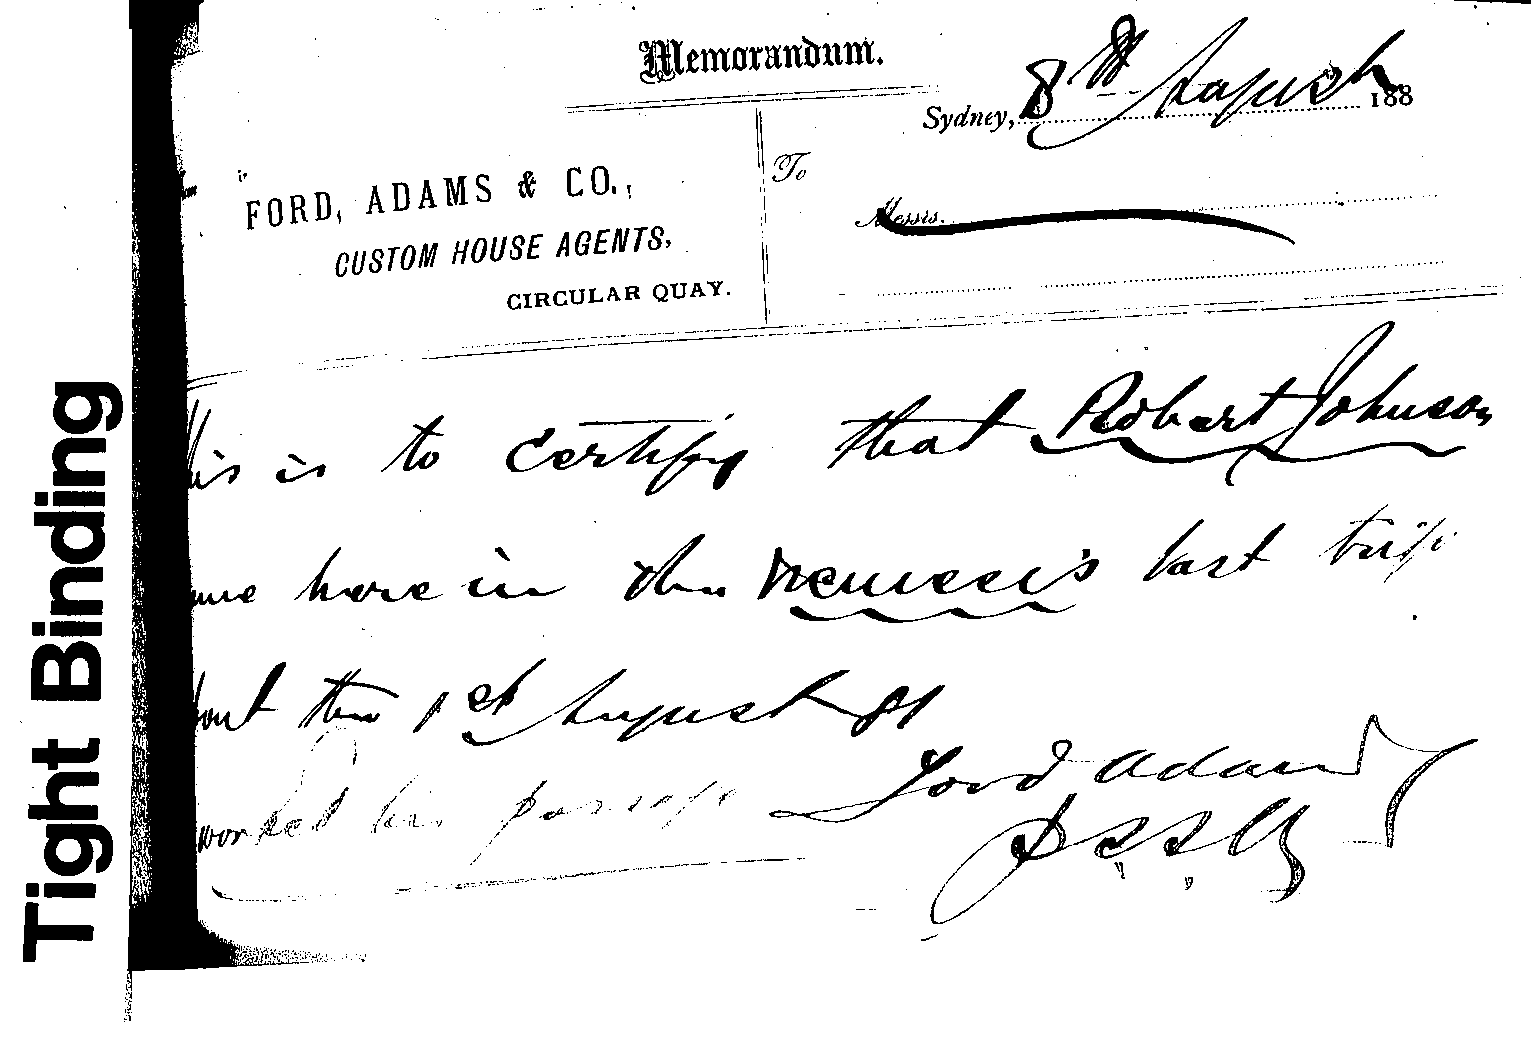 Memorandum.
Sydney, 8th August 188
FORD, ADAMS & CO.,
CUSTOM HOUSE AGENTS,
CIRCULAR QUAY.
To
Messrs.
This is to certify that Robert Johnson
came here in the Nemesis last trip
about the 1st August 81
worked his passage
Ford Adams
Tight Binding